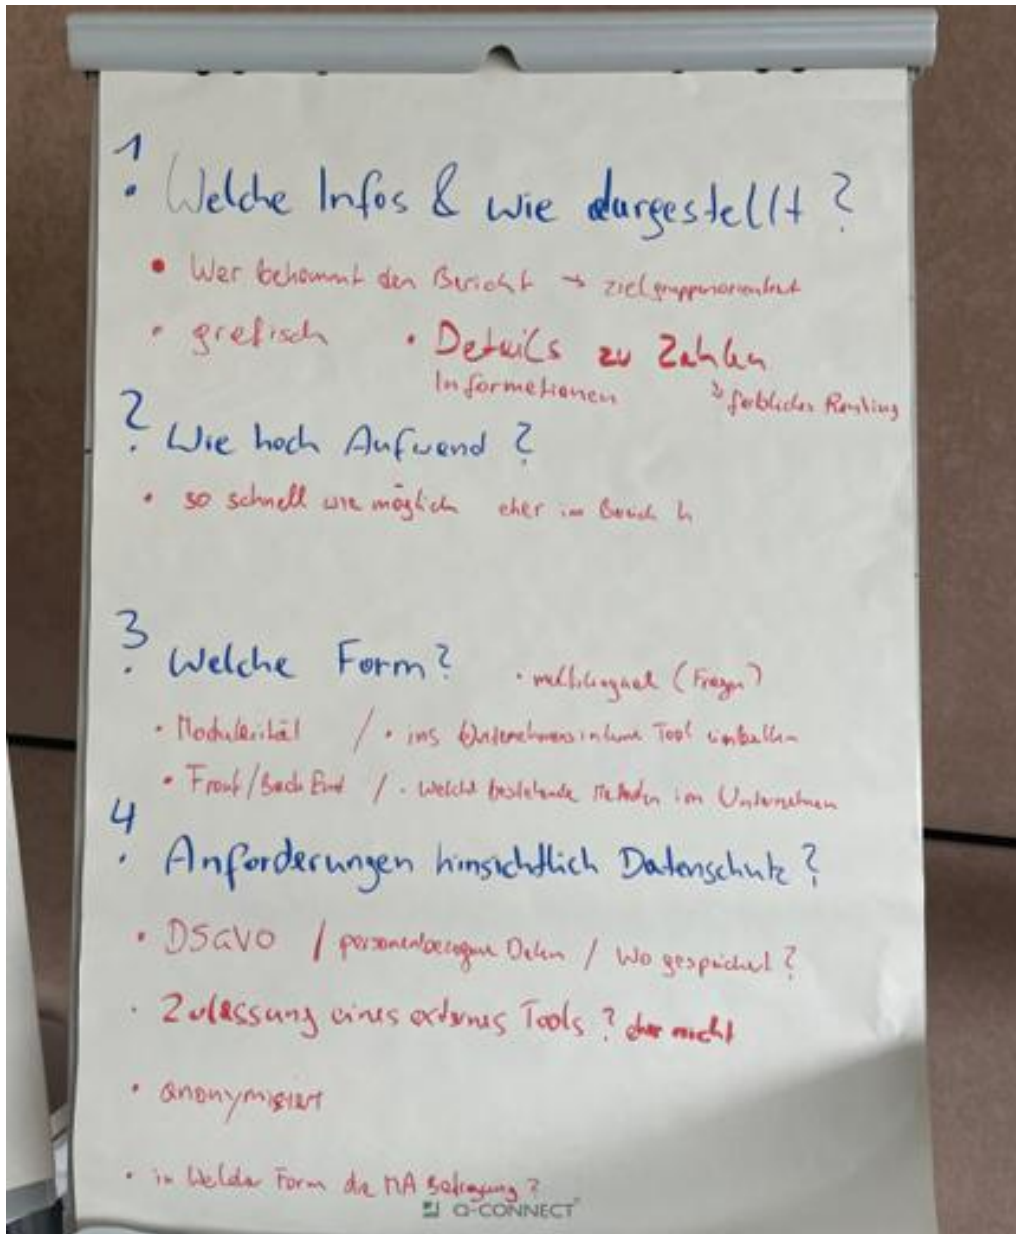 1. Welche Infos & wie dargestellt?
• Wer bekommt den Bericht → zielgruppenorientiert
• grafisch • Details zu Zahlen
Informationen farbliches Ranking
2. Wie hoch Aufwand?
• so schnell wie möglich eher im Bereich h
3. Welche Form? • multilingual (Fragen)
• Modularität / • ins Unternehmensinterne Tool
• Front/Back End / • Welche bestehende Methoden im Unternehmen
4. Anforderungen hinsichtlich Datenschutz?
• DSGVO / personenbezogene Daten / Wo gespeichert?
• Zulassung eines externes Tools? eher nicht
• anonymisiert
• in Welcher Form die MA Befragung?
Q-CONNECT